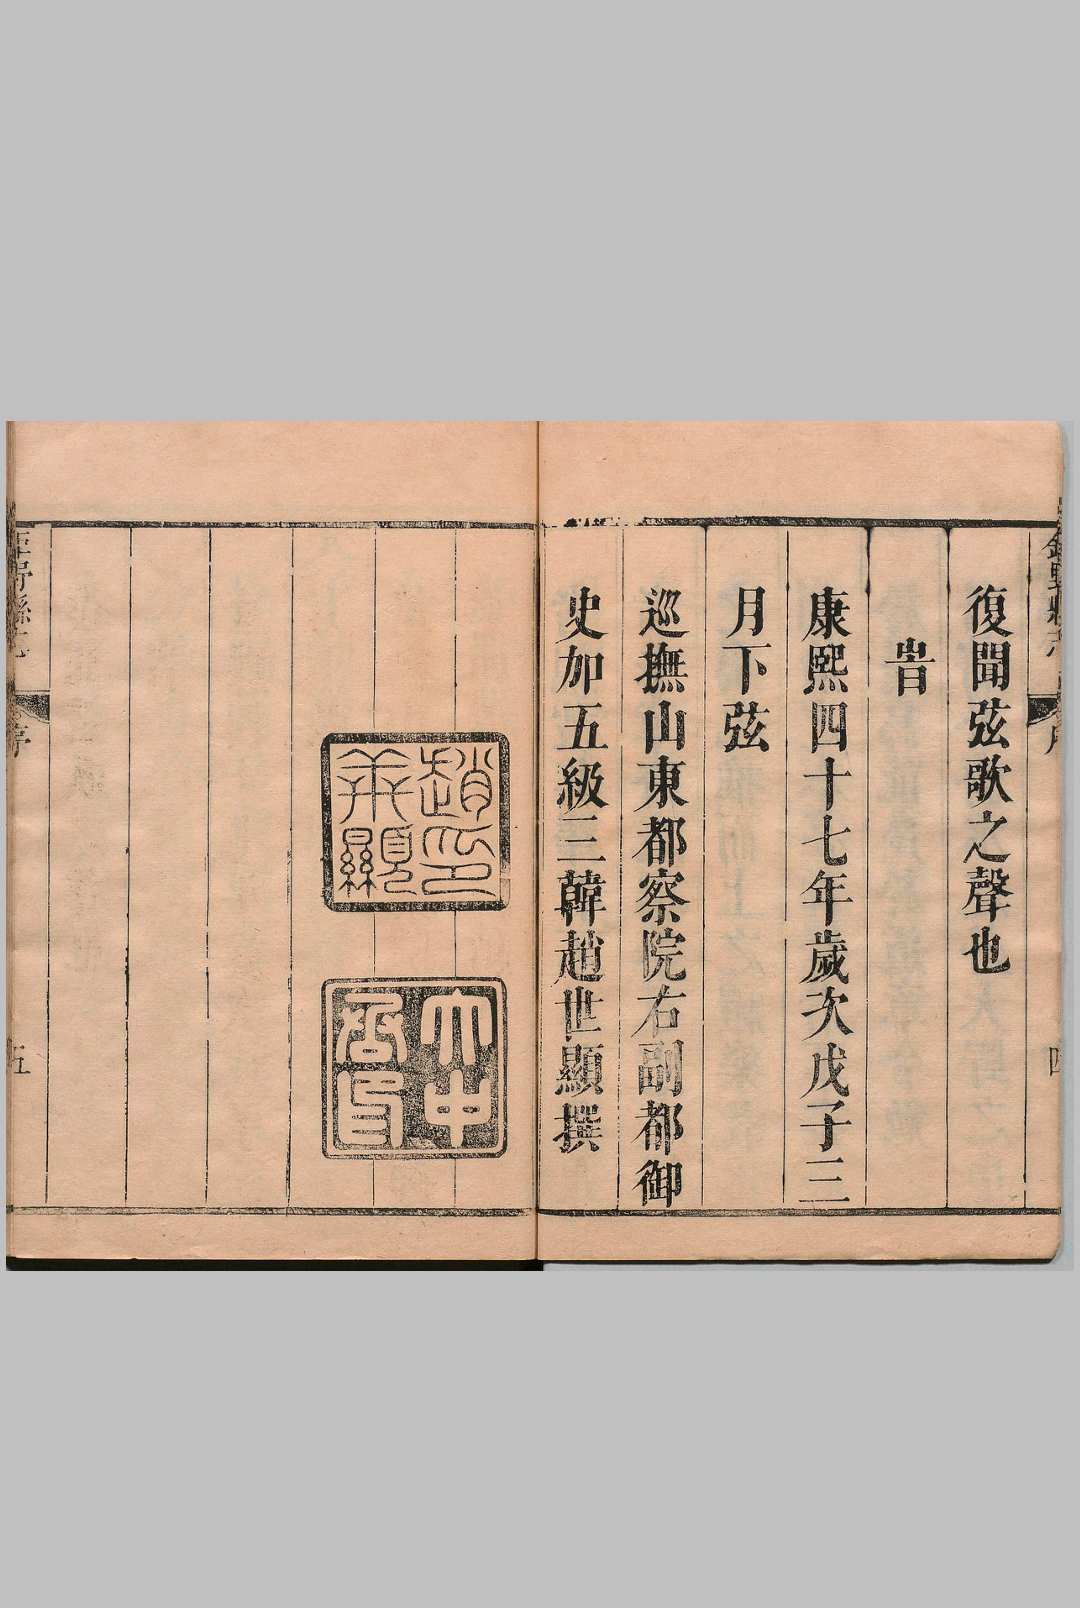 復聞弦歌之聲也
旹
康熙四十七年歲次戊子三
月下弦
巡撫山東都察院右副都御
史加五級三韓趙世顯撰
趙世顯印
大中丞印
縣志
序
五